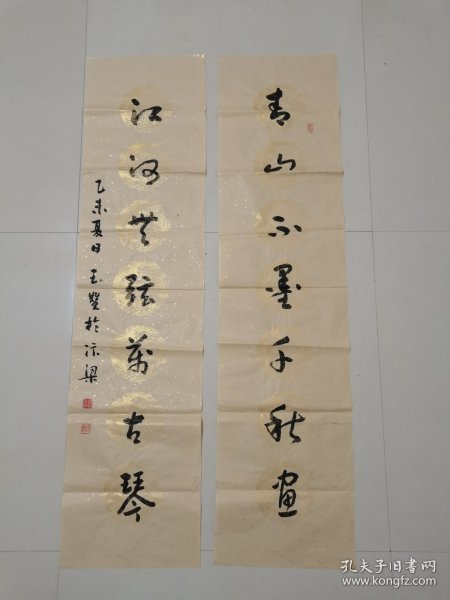 青山不墨千秋画
江河无弦万古琴
乙未夏日 玉双于汴梁
孔夫子旧书网
www.kongfz.com